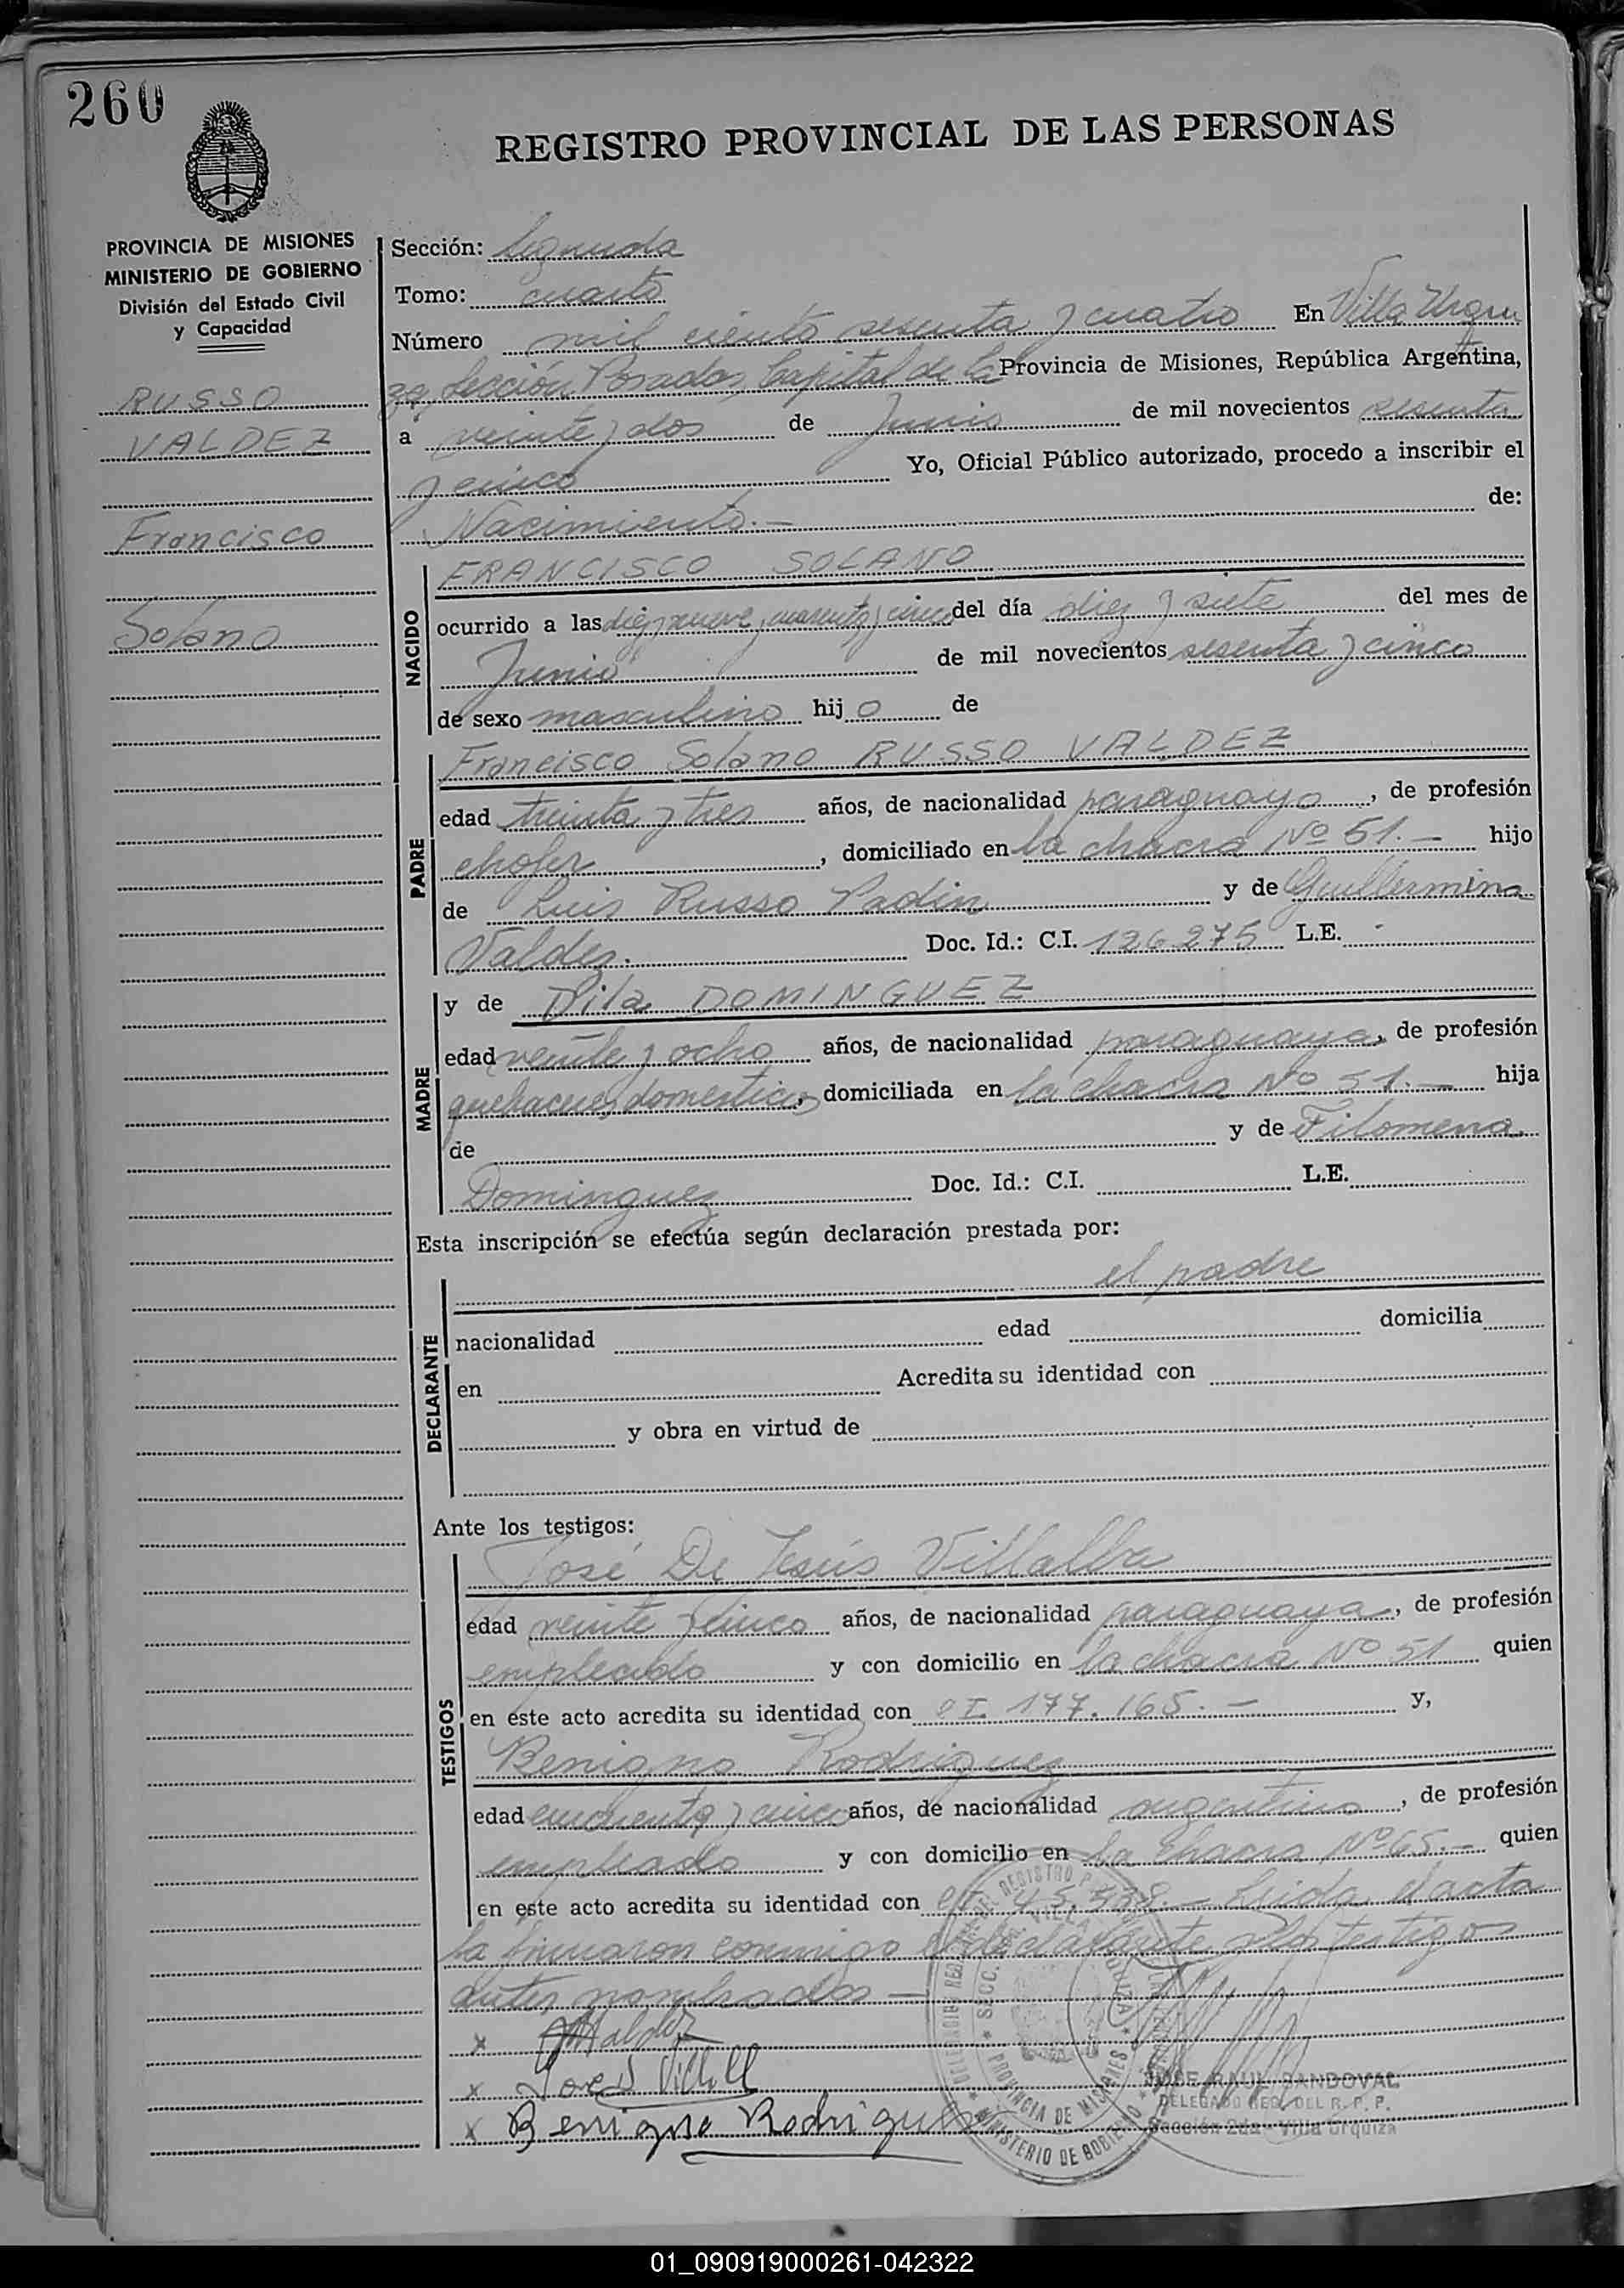 260
REGISTRO PROVINCIAL DE LAS PERSONAS
PROVINCIA DE MISIONES
MINISTERIO DE GOBIERNO
División del Estado Civil
y Capacidad
RUSSO
VALDEZ
Francisco
Solano
Sección: Segunda
Tomo: cuarto
Número mil ciento sesenta y cuatro En Villa Urqui
za, Sección Posadas, Capital de la Provincia de Misiones, República Argentina,
a veinte y dos de Junio de mil novecientos sesenta
y cinco Yo, Oficial Público autorizado, procedo a inscribir el
Nacimiento.— de:
NACIDO
FRANCISCO SOLANO
ocurrido a las diez y nueve y cuarenta y cinco del día diez y siete del mes de
Junio de mil novecientos sesenta y cinco
de sexo masculino hijo de
PADRE
Francisco Solano RUSSO VALDEZ
edad treinta y tres años, de nacionalidad paraguayo, de profesión
chofer, domiciliado en la chacra Nº 51.— hijo
de Luis Russo Padin y de Guillermina
Valdez. Doc. Id.: C.I. 126.275 L.E. -
MADRE
y de DOMINGUEZ
edad veinte y ocho años, de nacionalidad paraguaya, de profesión
quehaceres domesticos, domiciliada en la chacra Nº 51.— hija
de y de Filomena
Dominguez Doc. Id.: C.I. L.E.
Esta inscripción se efectúa según declaración prestada por:
DECLARANTE
el padre
nacionalidad edad domicilia
en Acredita su identidad con
y obra en virtud de
Ante los testigos:
TESTIGOS
José De Jesús Villalba
edad veinte y cinco años, de nacionalidad paraguaya, de profesión
empleado y con domicilio en la chacra Nº 51 quien
en este acto acredita su identidad con CI 177.165.— y,
Benigno Rodriguez
edad cincuenta y cinco años, de nacionalidad argentino, de profesión
empleado y con domicilio en la chacra Nº 65.— quien
en este acto acredita su identidad con CI 45.538.— Leida el acta
la firmaron conmigo el declarante y los testigos
antes nombrados —
x Valdez
x Jose D Villall
x Benigno Rodriguez
JOSE RAUL SANDOVAL
DELEGADO REG. DEL R. P. P.
Sección 2da - Villa Urquiza
PROVINCIA DE MISIONES
MINISTERIO DE GOBIERNO
01_090919000261-042322